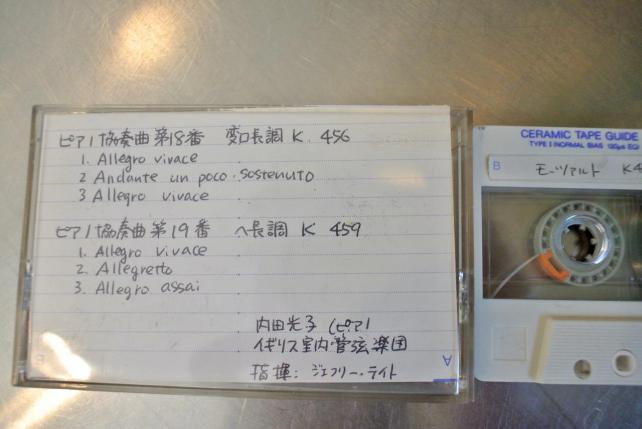 ピアノ協奏曲第18番 変ロ長調 K. 456
1. Allegro vivace
2 Andante un poco sostenuto
3 Allegro vivace
ピアノ協奏曲第19番 ヘ長調 K 459
1. Allegro vivace
2. Allegretto
3. Allegro assai
内田光子 (ピアノ
イギリス室内管弦楽団
指揮: ジェフリー・テイト
A
CERAMIC TAPE GUIDE
TYPE I (NORMAL BIAS 120μs EQ)
B モーツァルト K4